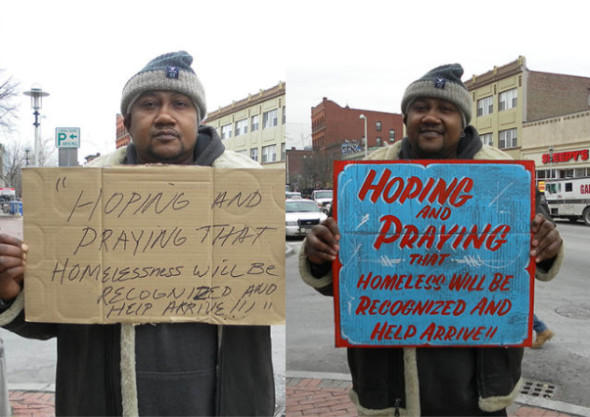 "HOPING AND
PRAYING THAT
HOMElESSNESS WiLL BE
RECOGNIZED AND
HELP ARRIVE!!!"
P
HOPING
AND
PRAYING
THAT
HOMELESS WILL BE
RECOGNIZED AND
HELP ARRIVE!!